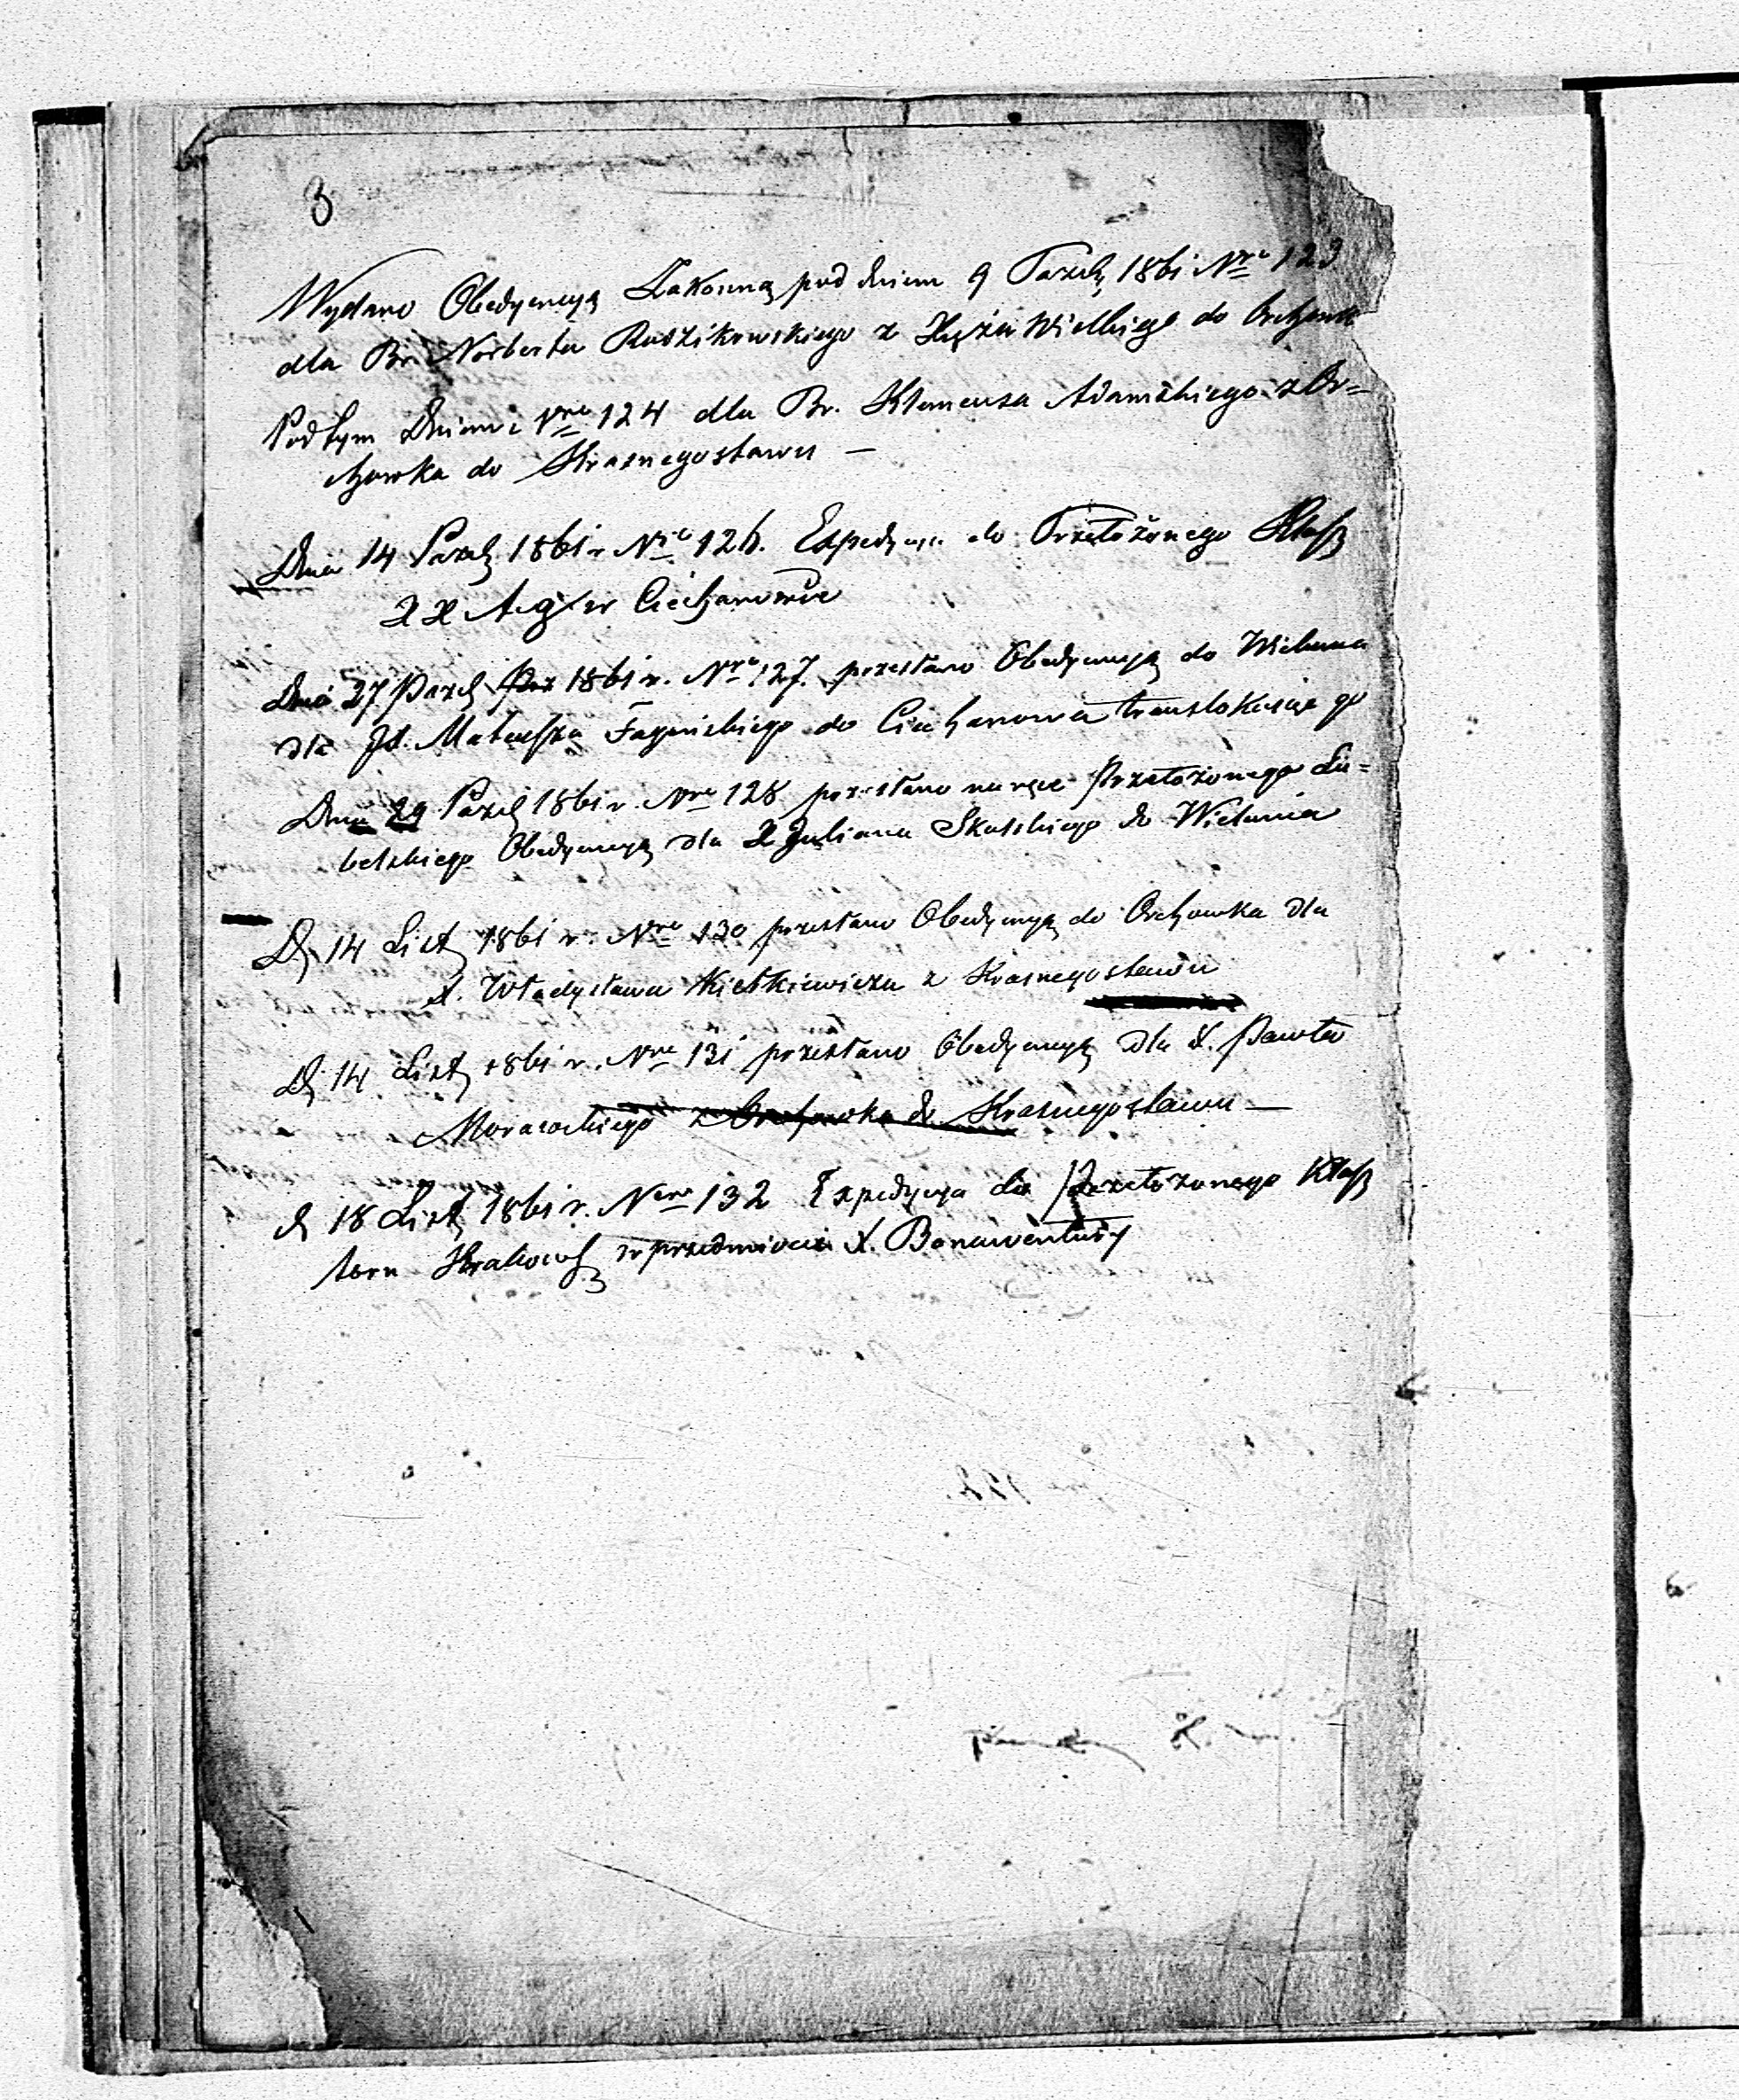 3
Wydano Obedyencyą Zakonną pod dniem 9 Paźdz 1861 Nro 123
dla Br. Norberta Ruszkowskiego z Książa Wielkiego do
Pod tym Dniem i Nro 124 dla Br. Klemensa Adamskiego z Or=
chowka do Krasnegostawu —
Dnia 14 Paźdz 1861 r Nro 126. Expedycya do Przełożonego Klasz
XX Aug w Ciechanowie
Dnia 27 Pazdz 1861 r. Nro 127. przesłano Obedyencyą do Wielunia
dla Mateusza do Ciechanowa translokując go
Dnia 29 Pazdz 1861 r. Nro 128 przesłano na ręce Przełożonego Lu=
belskiego Obedyencyą dla X Juliana Skulskiego do Wielunia
D. 14 List 1861 r. Nro 130 przesłano Obedyencyą do Orchowka dla
X. Władysława z Krasnegostawu
D. 14 List 1861 r. Nro 131 przesłano Obedyencyą dla X. Pawła
Morawskiego z Orchowka do Krasnegostawu —
d 18 List 1861 r. Nro 132 Expedycya do Przełożonego Klasz
toru Krakows w przedmiocie X. Bonawentury